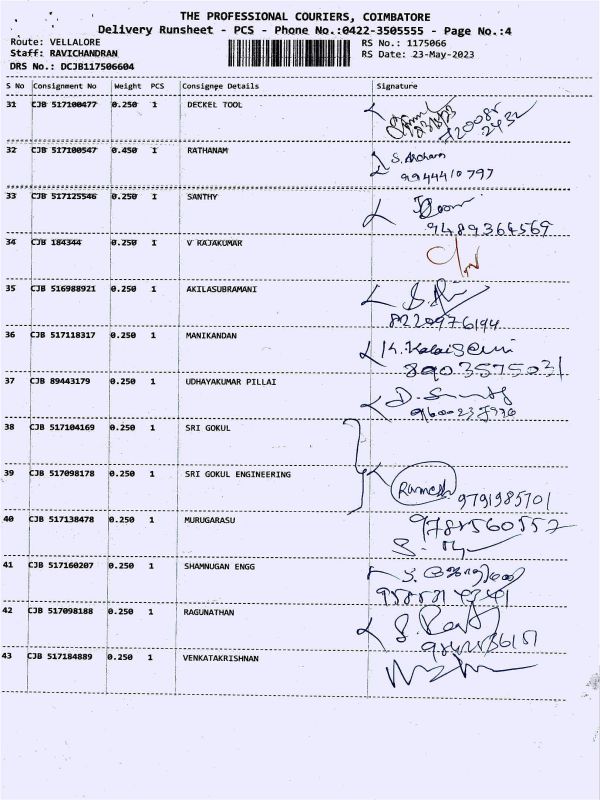 THE PROFESSIONAL COURIERS, COIMBATORE
Delivery Runsheet - PCS - Phone No.:0422-3505555 - Page No.:4
Route: VELLALORE RS No.: 1175066
Staff: RAVICHANDRAN RS Date: 23-May-2023
DRS No.: DCJB117506604
S No Consignment No Weight PCS Consignee Details Signature
31 CJB 517100477 0.250 1 DECKEL TOOL
32 CJB 517100547 0.450 1 RATHANAM
9944410797
33 CJB 517125546 0.250 1 SANTHY
9489364569
34 CJB 184344 0.250 1 V RAJAKUMAR
35 CJB 516988921 0.250 1 AKILASUBRAMANI
8220976194
36 CJB 517118317 0.250 1 MANIKANDAN
8903575031
37 CJB 89443179 0.250 1 UDHAYAKUMAR PILLAI
38 CJB 517104169 0.250 1 SRI GOKUL
39 CJB 517098178 0.250 1 SRI GOKUL ENGINEERING
Ramesh 9791985701
40 CJB 517138478 0.250 1 MURUGARASU
9788560557
41 CJB 517160207 0.250 1 SHAMNUGAN ENGG
42 CJB 517098188 0.250 1 RAGUNATHAN
43 CJB 517184889 0.250 1 VENKATAKRISHNAN